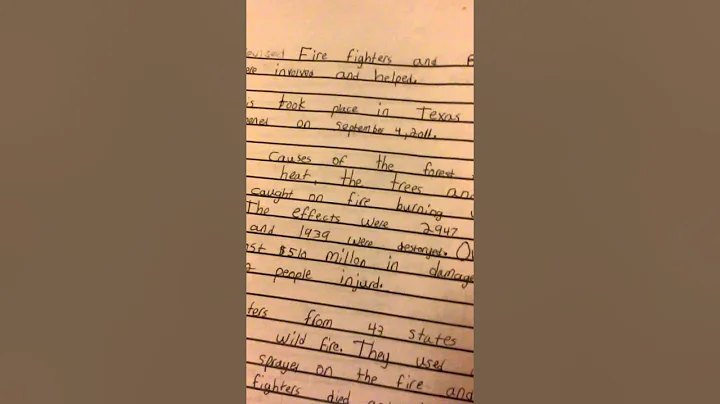 Fire fighters and
ere involved and helped.
is took place in Texas
ened on September 4, 2011.
causes of the forest
heat, the trees and
caught on fire burning
The effects were 2947
and 1939 were destroyed.
st $510 millon in damage
people injurd.
ters from 43 states
wild fire. They used
sprayer on the fire and
fighters died